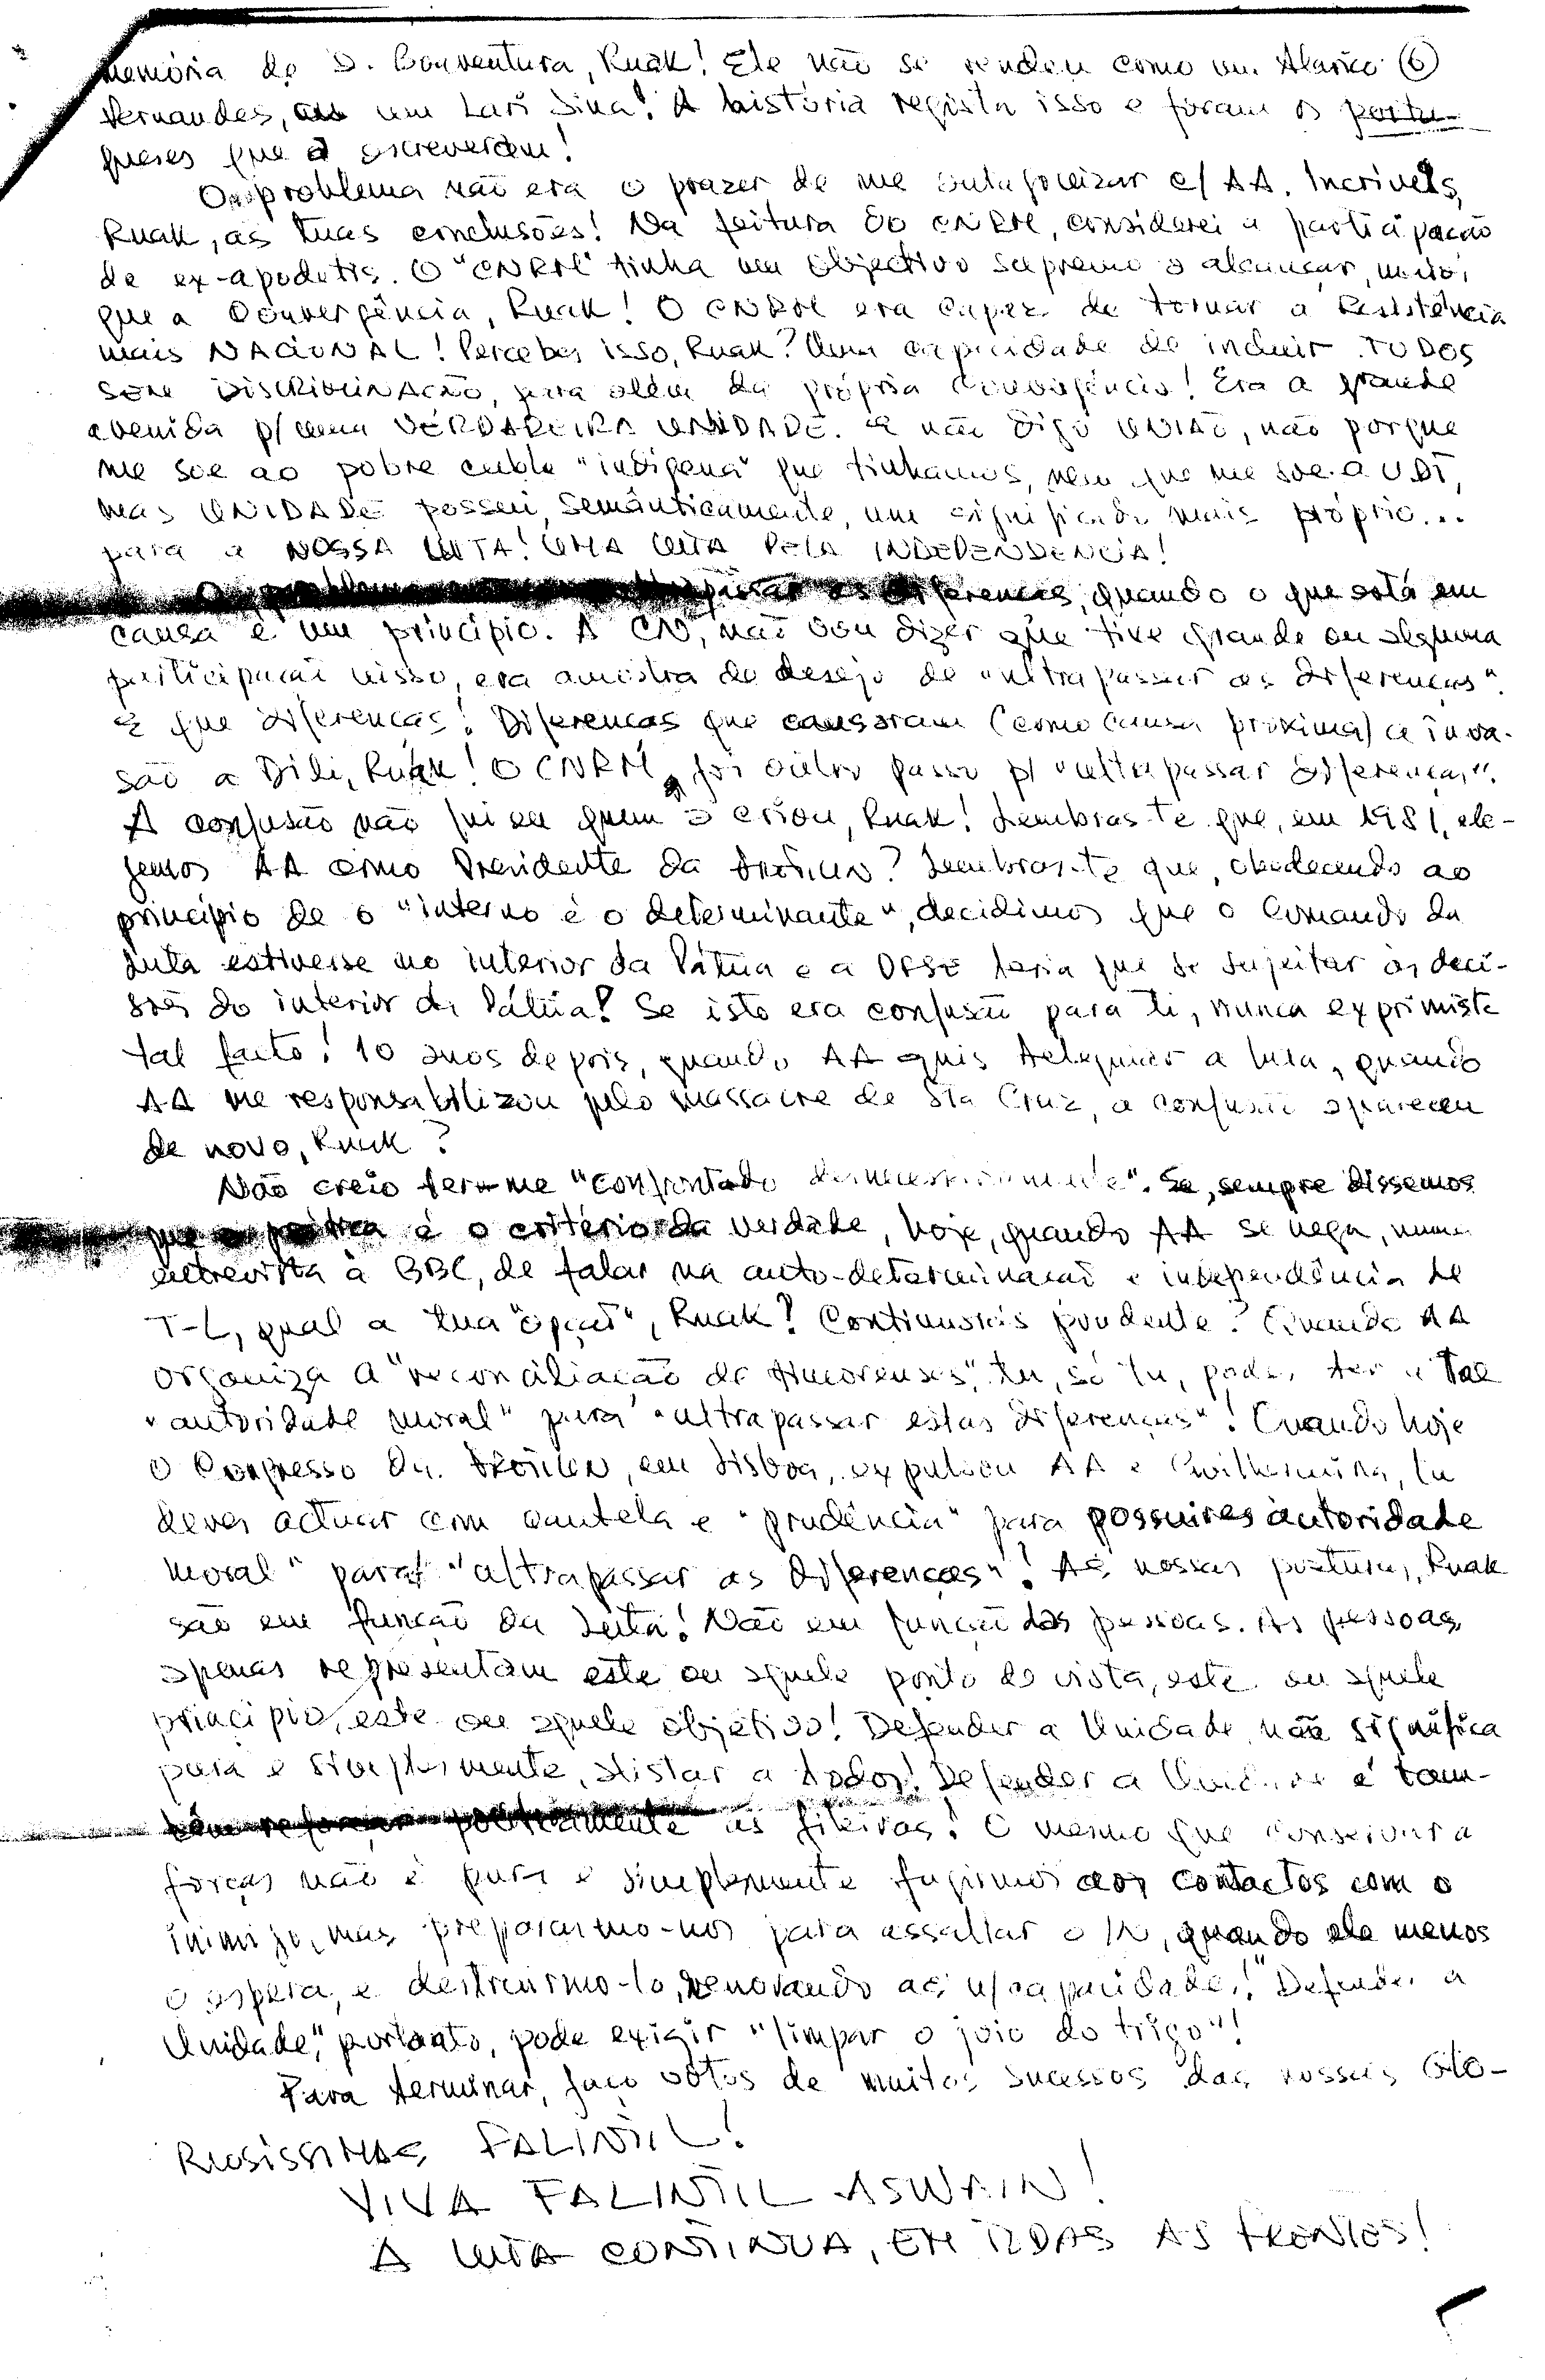 memória de D. Boaventura, Ruak! Ele não se rendeu como um Alarico (6)
Fernandes, ou um Lari Sina! A história regista isso e foram os portu-
gueses que a escreveram!
O problema não era o prazer de me antagonizar c/ AA. Incríveis,
Ruak, as tuas conclusões! Na feitura do CNRM, considerei a participação
de ex-apodetis. O "CNRM" tinha um objectivo supremo a alcançar, mais
que a Convergência, Ruak! O CNRM era capaz de tornar a Resistência
mais NACIONAL! Percebes isso, Ruak? Uma capacidade de incluir TODOS
SEM DISCRIMINAÇÃO, para além da própria Convergência! Era a grande
avenida p/ uma VERDADEIRA UNIDADE. E não digo UNIÃO, não porque
me soe ao pobre "indígena" que tinhamos, nem que me soe a UDT,
mas UNIDADE possui, semânticamente, um significado mais próprio...
para a NOSSA LUTA! UMA LUTA PELA INDEPENDENCIA!
O problema as diferenças, quando o que está em
causa é um princípio. A CN, não vou dizer que tive grande ou alguma
participação nisso, era amostra do desejo de "ultrapassar as diferenças".
E que diferenças! Diferenças que causaram (como causa próxima) a inva-
são a Dili, Ruak! O CNRM, foi outro passo p/ "ultrapassar diferenças".
A confusão não fui eu quem a criou, Ruak! Lembras-te que, em 1981, ele-
gemos AA como Presidente da Fretilin? Lembras-te que, obedecendo ao
princípio de o "interno é o determinante", decidimos que o Comando da
Luta estivesse no interior da Pátria e a DFSE teria que se sujeitar às deci-
sões do interior da Pátria? Se isto era confusão para ti, nunca exprimiste
tal facto! 10 anos depois, quando AA quis teleguiar a luta, quando
AA me responsabilizou pelo massacre de Sta Cruz, a confusão apareceu
de novo, Ruak?
Não creio ter-me "confrontado desnecessariamente". Se, sempre dissemos
que a prática é o critério da verdade, hoje, quando AA se nega, numa
entrevista à BBC, de falar na auto-determinação e independência de
T-L, qual a tua "opção", Ruak? Continuarias prudente? Quando AA
organiza a "reconciliação de timorenses", tu, só tu, podes ter a tal
"autoridade moral" para "ultrapassar estas diferenças"! Quando hoje
o Congresso da Fretilin, em Lisboa, expulsou AA e Guilhermina, tu
deves actuar com cautela e "prudência" para possuires "autoridade
moral" para "ultrapassar as diferenças"! As nossas posturas, Ruak
são em função da Luta! Não em função das pessoas. As pessoas,
apenas representam este ou aquele ponto de vista, este ou aquele
princípio, este ou aquele objetivo! Defender a Unidade não significa
pura e simplesmente, alistar a todos! Defender a Unidade é tam-
bém reforçar politicamente as fileiras! O mesmo que conservar a
forças não é pura e simplesmente fugirmos aos contactos com o
inimigo, mas prepararmo-nos para assaltar o IN, quando ele menos
o espera, e destruirmo-lo, renovando as n/capacidades! "Defender a
Unidade", portanto, pode exigir "limpar o joio do trigo"!
Para terminar, faço votos de muitos sucessos das nossas GLO-
RIOSÍSSIMAS FALINTIL!
VIVA FALINTIL ASWAIN!
A LUTA CONTINUA, EM TODAS AS FRENTES!